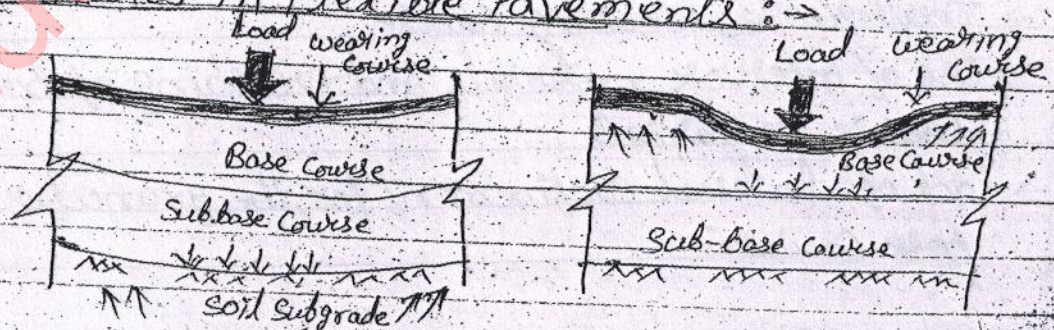 in Flexible Pavements :→
Load wearing course
Base Course
Subbase Course
Soil Subgrade
Load wearing Course
Base Course
Sub-base Course